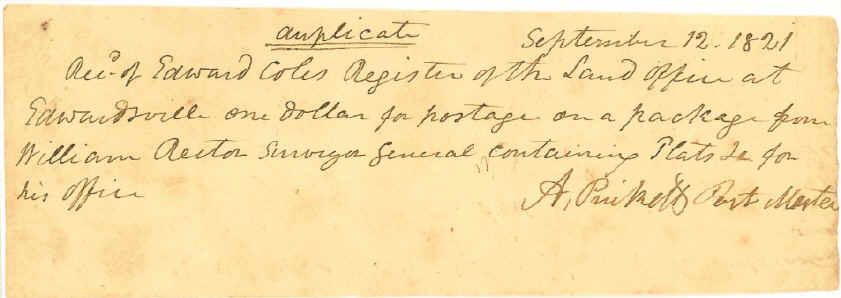 duplicate
September 12. 1821
Rec.d of Edward Coles Register of the Land Office at
Edwardsville one dollar for postage on a package from
William Rector Surveyor General containing Plats &c for
his office
A. Prickett Post Master